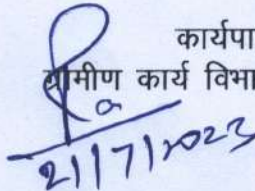 कार्यपा
ग्रामीण कार्य विभा
21/7/2023